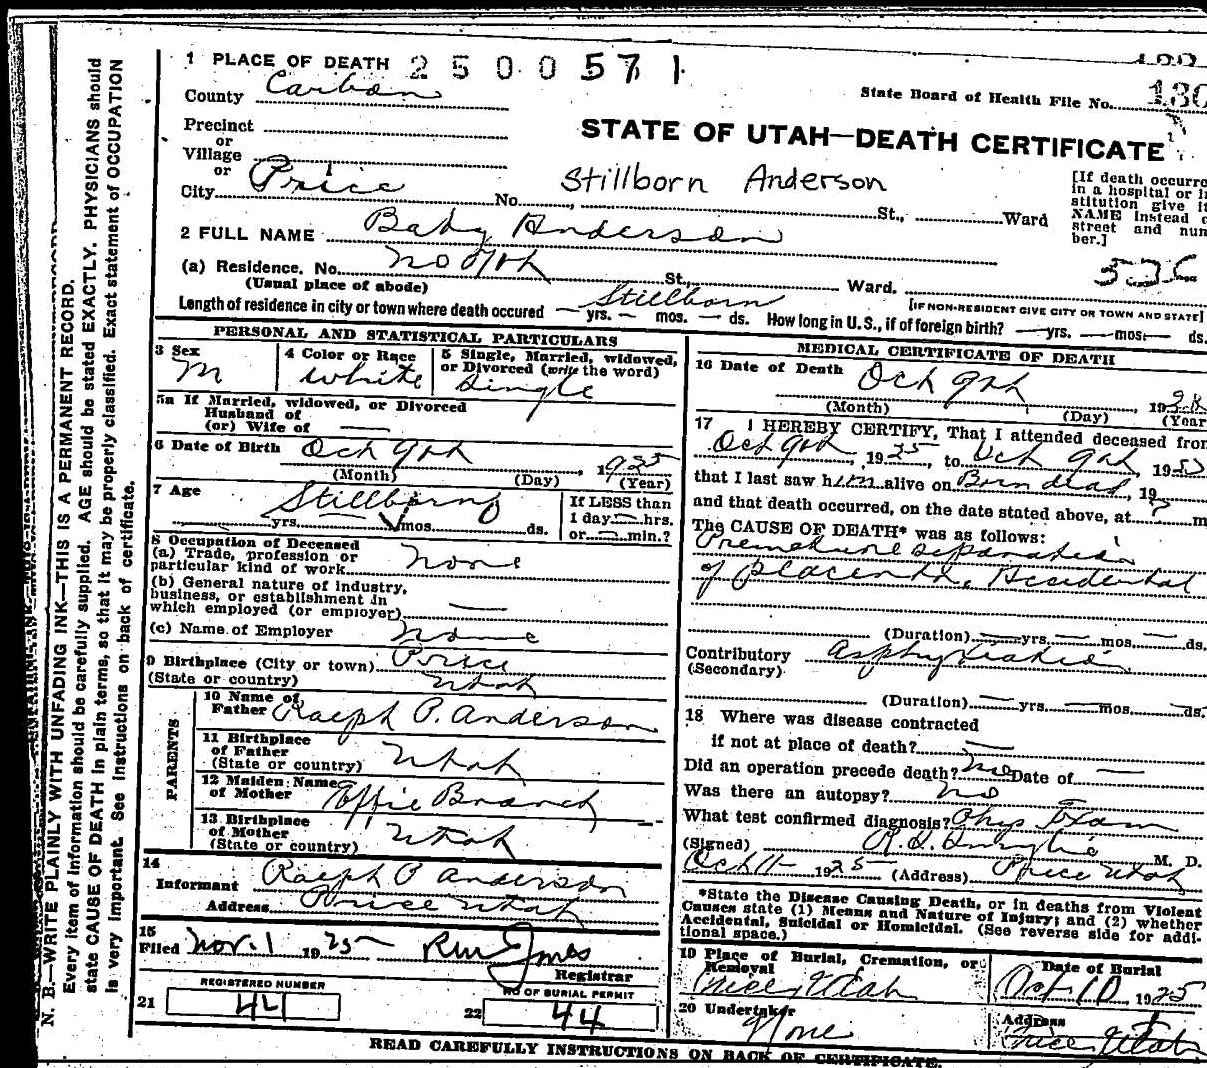 1 PLACE OF DEATH 2500571
County Carbon
State Board of Health File No.
Precinct
or
Village
or
City Price No. St., Ward
STATE OF UTAH—DEATH CERTIFICATE
Stillborn Anderson
[If death occurre
in a hospital or in
stitution give it
NAME instead o
street and num
ber.]
2 FULL NAME Baby Anderson
(a) Residence. No. St. Ward.
(Usual place of abode)
Length of residence in city or town where death occured — yrs. — mos. — ds. How long in U.S., if of foreign birth? — yrs. — mos. — ds.
Stillborn
[IF NON-RESIDENT GIVE CITY OR TOWN AND STATE]
PERSONAL AND STATISTICAL PARTICULARS
3 Sex M
4 Color or Race white
5 Single, Married, widowed,
or Divorced (write the word)
Single
5a If Married, widowed, or Divorced
Husband of
(or) Wife of —
6 Date of Birth Oct 9th, 1925
(Month) (Day) (Year)
7 Age Stillborn
yrs. mos. ds.
If LESS than
1 day — hrs.
or — min.?
8 Occupation of Deceased
(a) Trade, profession or
particular kind of work none
(b) General nature of industry,
business, or establishment in
which employed (or employer) —
(c) Name of Employer none
9 Birthplace (City or town) Price
(State or country) Utah
PARENTS
10 Name of
Father Ralph P. Anderson
11 Birthplace
of Father
(State or country) Utah
12 Maiden Name
of Mother Effie Branch
13 Birthplace
of Mother
(State or country) Utah
14
Informant Ralph P Anderson
Address Price Utah
15
Filed Nov. 1 1925
Registrar
REGISTERED NUMBER
21 44
NO OF BURIAL PERMIT
22 44
MEDICAL CERTIFICATE OF DEATH
16 Date of Death Oct 9th, 19
(Month) (Day) (Year
17 I HEREBY CERTIFY, That I attended deceased from
Oct 9th, 1925, to Oct 9th, 19
that I last saw him alive on Born dead, 19
and that death occurred, on the date stated above, at ? m
The CAUSE OF DEATH* was as follows:
Premature separation
of placenta, Accidental
(Duration) — yrs. — mos. — ds.
Contributory asphyxiation
(Secondary)
(Duration) — yrs. — mos. — ds.
18 Where was disease contracted
if not at place of death? —
Did an operation precede death? no Date of —
Was there an autopsy? no
What test confirmed diagnosis? Phys Exam
(Signed) M. D.
Oct 11 1925 (Address) Price Utah
*State the Disease Causing Death, or in deaths from Violent
Causes state (1) Means and Nature of Injury; and (2) whether
Accidental, Suicidal or Homicidal. (See reverse side for addi-
tional space.)
19 Place of Burial, Cremation, or
Removal
Price, Utah
Date of Burial
Oct 10, 1925
20 Undertaker
None
Address
Price, Utah
READ CAREFULLY INSTRUCTIONS ON BACK OF CERTIFICATE.
N. B.—WRITE PLAINLY WITH UNFADING INK—THIS IS A PERMANENT RECORD.
Every item of information should be carefully supplied. AGE should be stated EXACTLY. PHYSICIANS should
state CAUSE OF DEATH in plain terms, so that it may be properly classified. Exact statement of OCCUPATION
is very important. See instructions on back of certificate.